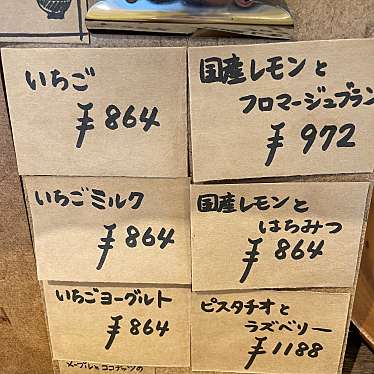 いちご
¥864
国産レモンと
フロマージュブラン
¥972
いちごミルク
¥864
国産レモンと
はちみつ
¥864
いちごヨーグルト
¥864
ピスタチオと
ラズベリー
¥1188
メープルとココナッツの